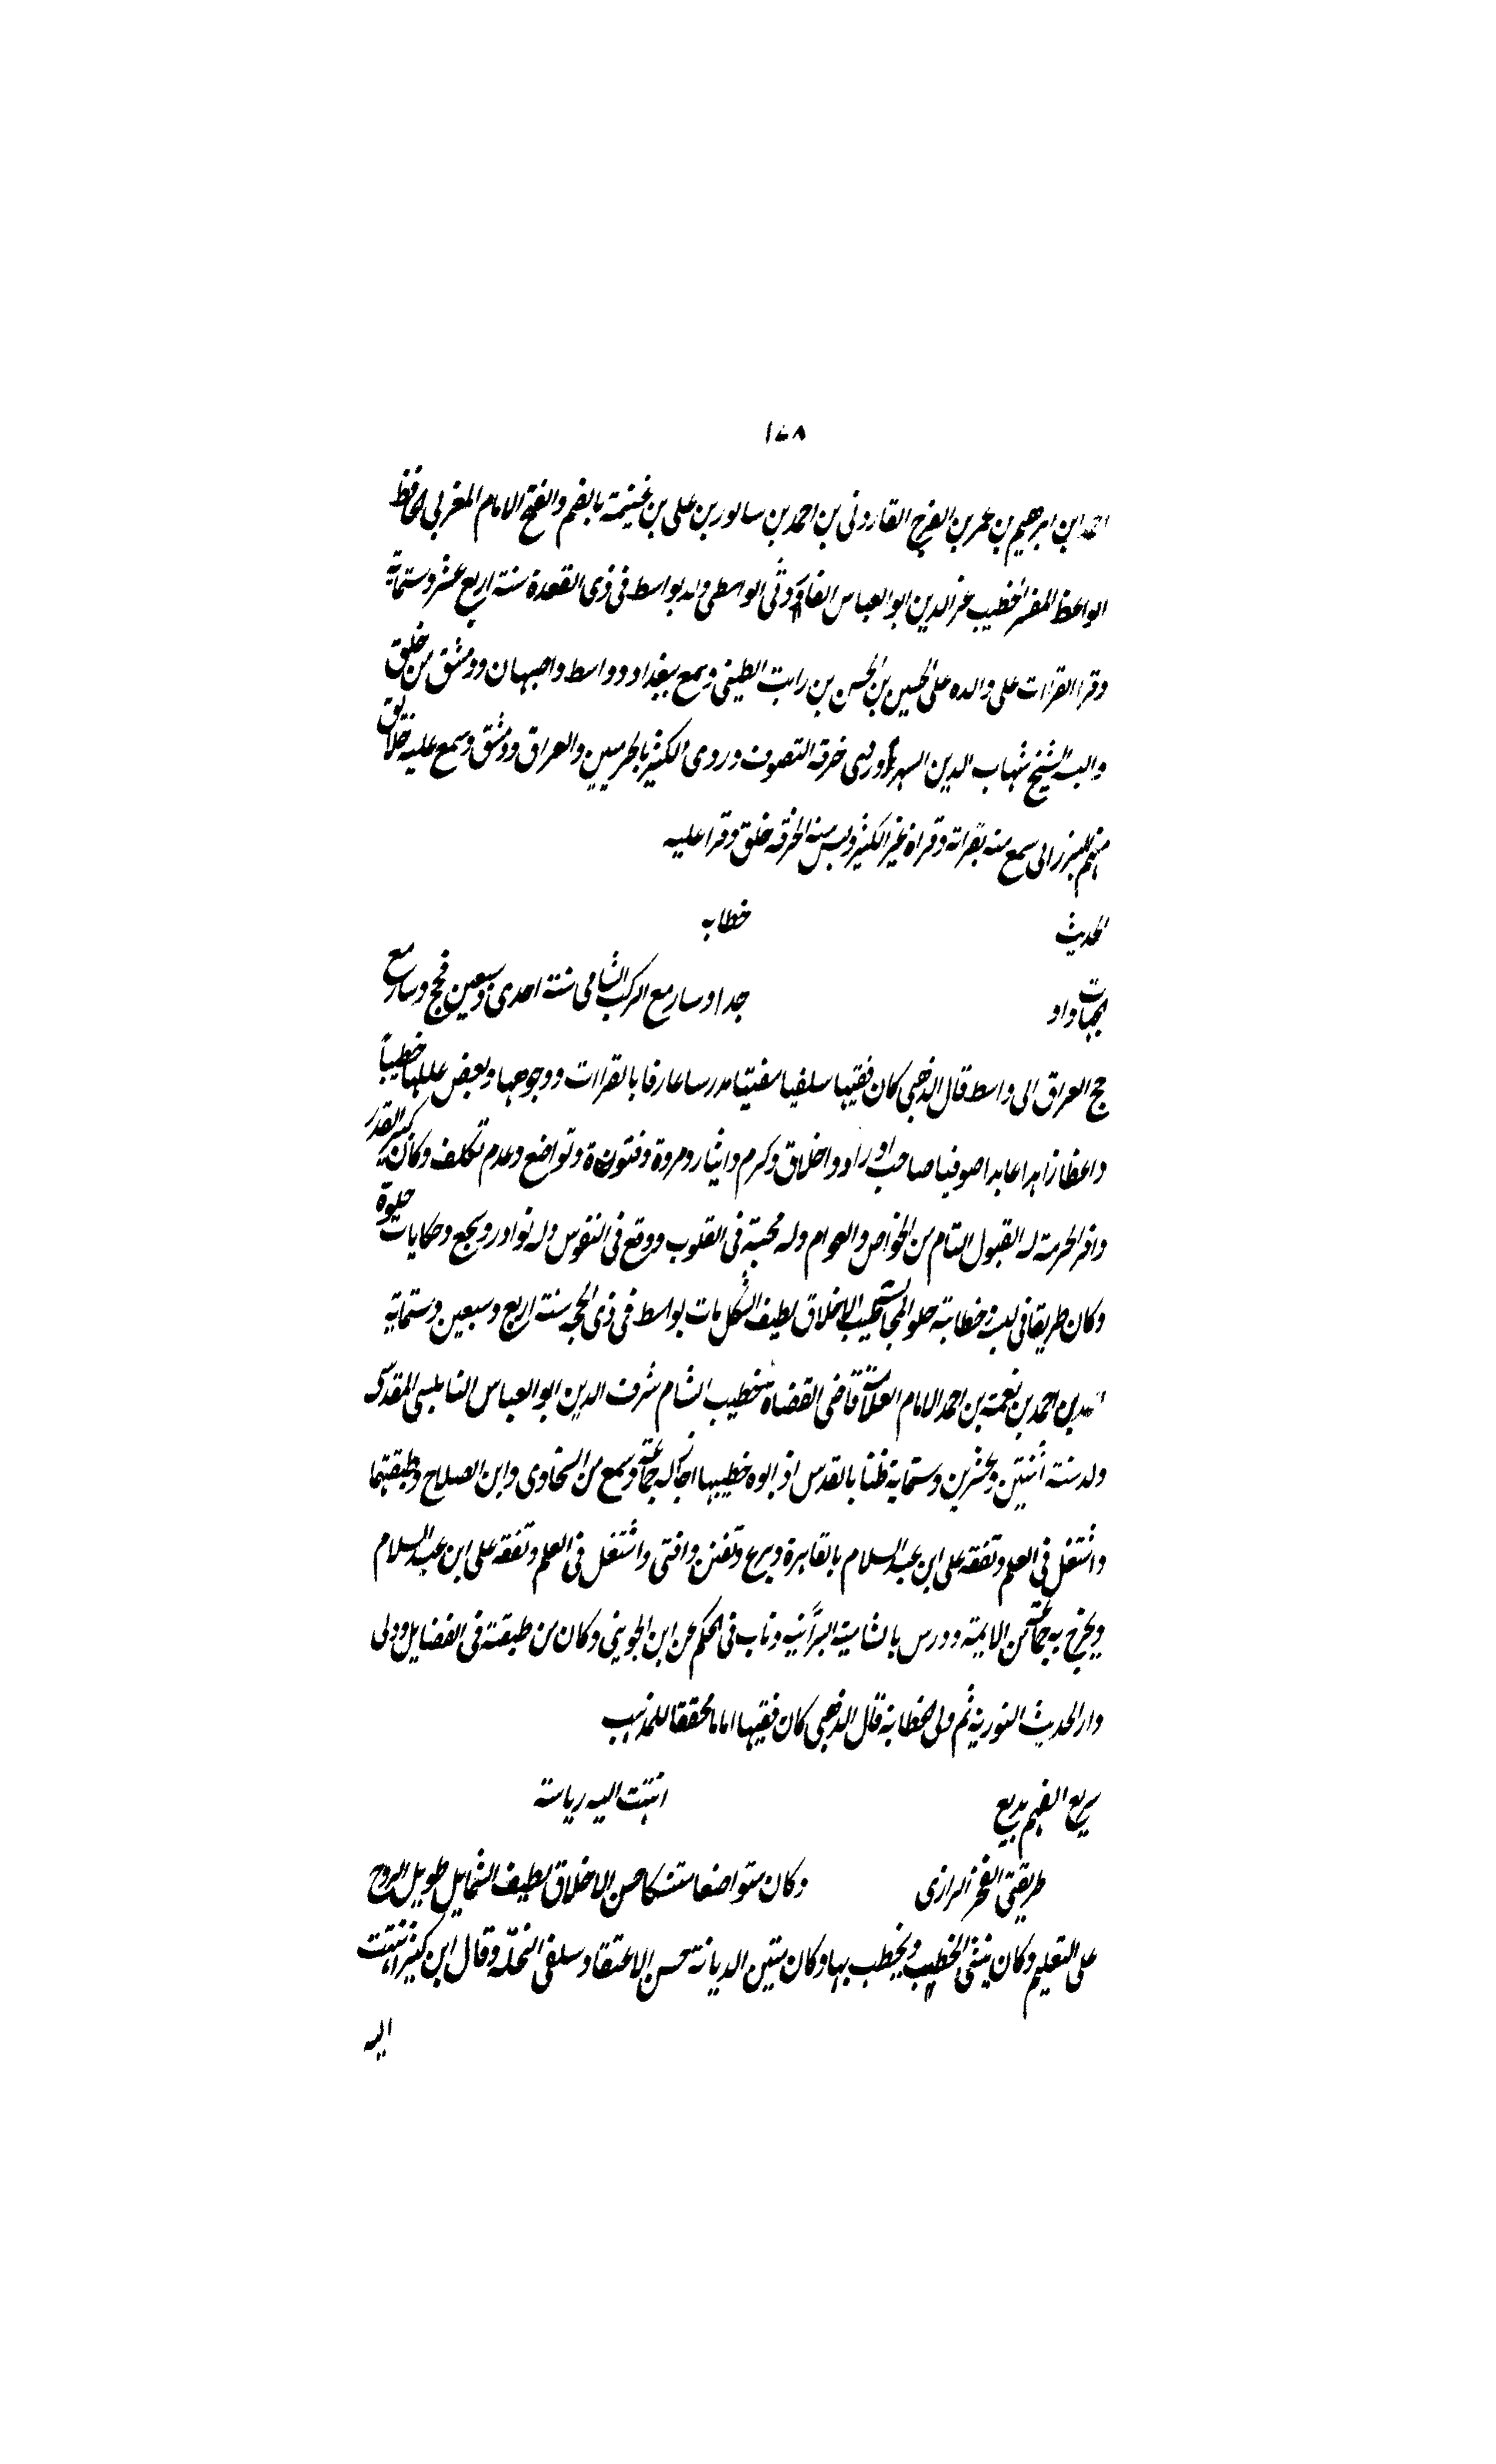 ١٤٨
احمد ابن ابرهيم بن عمر بن الفرج القاروثى بن احمد بن سابور بن على بن غنيمة بالضم والفتح الامام المغربى الحافظ
الواعظ المفسر الخطيب عز الدين ابو العباس الفاروثى الواسطى ولد بواسط فى ذى القعدة سنة اربع عشر وستماية
وقرا القرات على والده على الحسين بن الحسن بن رابت الطيبى وسمع ببغداد وواسط واصبهان ودمشق من خلق
والبسه الشيخ شهاب الدين السهروردى خرقة التصوف وروى الكثير بالحرمين والعراق ودمشق وسمع عليه خلايق
منهم البرزالى سمع منه بقراته وقراة غيره الكثير ولبس منه الخرقه خلق وقرا عليه
الحديث خطابه
الجهات واو جدا وسار مع الركب الشامى سنة احدى وسبعين فحج وسار مع
حج العراق الى واسط قال الذهبى كان فقيها سلفيا مفتيا مدرسا عارفا بالقراات ووجوهها وبعض عللها خطيباً
واعظا زاهدا عابدا صوفيا صاحب اوراد واخلاق وكرم وايثار ومروة وفتوة وتواضع وعدم تكلف وكان كبير القدر
وافر الحرمة له القبول التام من الخواص والعوام وله محبة فى القلوب ووقع فى النفوس وله نوادر وسجع وحكايات حلوة
وكان ظريفا فى لبسه وخطابته حلو المجالسة طيب الاخلاق لطيف الشكل مات بواسط فى ذى الحجه سنة اربع وسبعين وستماية
احمد بن احمد بن نعمة بن احمد الامام العلامة قاضى القضاة خطيب الشام شرف الدين ابو العباس النابلسى المقدسى
ولد سنة اثنتين وعشرين وستماية ظنا بالقدس اذ ابوه خطيبها اجاز له جماعة وسمع من السخاوى وابن الصلاح وطبقتهما
واشتغل فى العلم وتفقه على ابن عبد السلام بالقاهرة وبرع وتفنن وافتى واشتغل فى العلم وتفقه على ابن عبد السلام
وتخرج به جماعة من الايمة ودرس بالشامية البرَّانية وناب فى الحكم عن ابن الجوينى وكان من طبقته فى الفضايل وولى
دار الحديث النورية ثم ولى الخطابة قال الذهبى كان فقيها اماما محققا للمذهب
سريع الفهم بديع انتهت اليه رياسة
طريقتى الفخر الرازى وكان متواضعا متنسكا حسن الاخلاق لطيف الشمايل طويل الروح
على التعليم وكان ينشى الخطب ويخطب بها وكان متين الديانة حسن الاعتقاد سلفى النحلة وقال ابن كثير انتهت
اليه